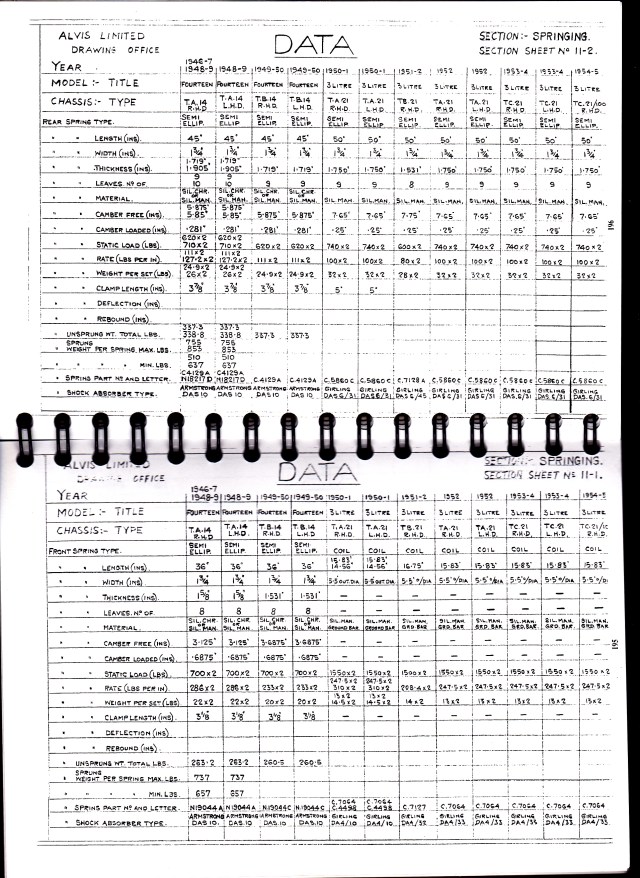 ALVIS LIMITED DATA SECTION:- SPRINGING.
DRAWING OFFICE SECTION SHEET Nº 11-2.
YEAR 1946-7 1948-9 1948-9 1949-50 1949-50 1950-1 1950-1 1951-2 1952 1952 1953-4 1953-4 1954-5
MODEL:- TITLE FOURTEEN FOURTEEN FOURTEEN FOURTEEN 3 LITRE 3 LITRE 3 LITRE 3 LITRE 3 LITRE 3 LITRE 3 LITRE 3 LITRE
CHASSIS:- TYPE T.A.14 R.H.D. T.A.14 L.H.D. T.B.14 R.H.D. T.B.14 L.H.D T.A.21 R.H.D. T.A.21 L.H.D. TB.21 R.H.D. TA.21 R.H.D. TA.21 L.H.D. TC.21 R.H.D. TC.21 L.H.D. TC.21/100 R.H.D.
REAR SPRING TYPE. SEMI ELLIP. SEMI ELLIP. SEMI ELLIP. SEMI ELLIP. SEMI ELLIP. SEMI ELLIP. SEMI ELLIP. SEMI ELLIP. SEMI ELLIP. SEMI ELLIP. SEMI ELLIP. SEMI ELLIP.
" " LENGTH (INS) 45" 45" 45" 45" 50" 50" 50" 50" 50" 50" 50" 50"
" " WIDTH (INS) 1¾" 1¾" 1¾" 1¾" 1¾" 1¾" 1¾" 1¾" 1¾" 1¾" 1¾" 1¾"
" " THICKNESS (INS) 1·719" 1·905" 1·719" 1·905" 1·719" 1·719" 1·750" 1·750" 1·531" 1·750" 1·750" 1·750" 1·750" 1·750"
" " LEAVES. Nº OF. 9 10 9 10 9 9 9 9 8 9 9 9 9 9
" " MATERIAL. SIL.CHR. OR SIL.MAN. SIL.CHR. OR SIL.MAN. SIL.CHR. OR SIL.MAN. SIL.CHR. OR SIL.MAN. SIL.MAN. SIL.MAN. SIL.MAN. SIL.MAN. SIL.MAN. SIL.MAN. SIL.MAN. SIL.MAN.
" " CAMBER FREE (INS) 5·875" 5·85" 5·875" 5·85" 5·875" 5·875" 7·65" 7·65" 7·75" 7·65" 7·65" 7·65" 7·65" 7·65"
" " CAMBER LOADED (INS) ·281" ·281" ·281" ·281" ·25" ·25" ·25" ·25" ·25" ·25" ·25" ·25"
" " STATIC LOAD (LBS) 620×2 710×2 620×2 710×2 620×2 620×2 740×2 740×2 600×2 740×2 740×2 740×2 740×2 740×2
" " RATE (LBS PER IN) 111×2 127·2×2 111×2 127·2×2 111×2 111×2 100×2 100×2 80×2 100×2 100×2 100×2 100×2 100×2
" " WEIGHT PER SET (LBS) 24·9×2 26×2 24·9×2 26×2 24·9×2 24·9×2 32×2 32×2 28×2 32×2 32×2 32×2 32×2 32×2
" " CLAMP LENGTH (INS) 3⅞" 3⅞" 3⅞" 3⅞" 5" 5"
" " DEFLECTION (INS)
" " REBOUND (INS)
" UNSPRUNG WT. TOTAL LBS. 337·3 338·8 337·3 338·8 337·3 337·3
" SPRUNG WEIGHT PER SPRING. MAX. LBS. 755 853 755 853
" " " " MIN. LBS 510 637 510 637
" SPRING PART Nº AND LETTER. C.4129A N18217D C.4129A N18217D C.4129A C.4129A C.5860C C.5860C C.7128A C.5860C C.5860C C.5860C C.5860C C.5860C
" SHOCK ABSORBER TYPE. ARMSTRONG DAS 10 ARMSTRONG DAS 10 ARMSTRONG DAS 10 ARMSTRONG DAS 10 GIRLING DAS.6/31 GIRLING DAS.6/31 GIRLING DAS.6/45 GIRLING DAS.6/31 GIRLING DAS.6/31 GIRLING DAS.6/31 GIRLING DAS.6/31 GIRLING DAS.6/31
196
ALVIS LIMITED DATA SECTION:- SPRINGING.
DRAWING OFFICE SECTION SHEET Nº 11-1.
YEAR 1946-7 1948-9 1948-9 1949-50 1949-50 1950-1 1950-1 1951-2 1952 1952 1953-4 1953-4 1954-5
MODEL:- TITLE FOURTEEN FOURTEEN FOURTEEN FOURTEEN 3 LITRE 3 LITRE 3 LITRE 3 LITRE 3 LITRE 3 LITRE 3 LITRE 3 LITRE
CHASSIS:- TYPE T.A.14 R.H.D. T.A.14 L.H.D. T.B.14 R.H.D. T.B.14 L.H.D T.A.21 R.H.D. T.A.21 L.H.D. TB.21 R.H.D. TA.21 R.H.D. TA.21 L.H.D. TC.21 R.H.D. TC.21 L.H.D. TC.21/1C R.H.D.
FRONT SPRING TYPE. SEMI ELLIP. SEMI ELLIP. SEMI ELLIP. SEMI ELLIP. COIL COIL COIL COIL COIL COIL COIL COIL
" " LENGTH (INS) 36" 36" 36" 36" 15·83" 14·56" 15·83" 14·56" 16·75" 15·83" 15·83" 15·83" 15·83" 15·83"
" " WIDTH (INS) 1¾" 1¾" 1¾" 1¾" 5·5" OUT.DIA 5·5" OUT.DIA 5·5" O/DIA 5·5" O/DIA 5·5" O/DIA 5·5" O/DIA 5·5" O/DIA 5·5" O/DI
" " THICKNESS (INS) 1⅝" 1⅝" 1·531" 1·531" — — — — — — — —
" " LEAVES. Nº OF 8 8 8 8 — — — — — — — —
" " MATERIAL SIL.CHR. OR SIL.MAN. SIL.CHR. OR SIL.MAN. SIL.CHR. OR SIL.MAN. SIL.CHR. OR SIL.MAN. SIL.MAN. GROUND BAR SIL.MAN. GROUND BAR SIL.MAN. GRD.BAR SIL.MAN. GRD.BAR SIL.MAN. GRD.BAR SIL.MAN. GRD.BAR SIL.MAN. GRD.BAR SIL.MAN. GRD.BAR
" " CAMBER FREE (INS) 3·125" 3·125" 3·6875" 3·6875" — — — — — — — —
" " CAMBER LOADED (INS) ·6875" ·6875" ·6875" ·6875" — — — — — — — —
" " STATIC LOAD (LBS) 700×2 700×2 700×2 700×2 1550×2 1550×2 1500×2 1550×2 1550×2 1550×2 1550×2 1550×2
" " RATE (LBS PER IN) 286×2 286×2 233×2 233×2 247·5×2 310×2 247·5×2 310×2 228·6×2 247·5×2 247·5×2 247·5×2 247·5×2 247·5×2
" " WEIGHT PER SET (LBS) 22×2 22×2 20×2 20×2 13×2 14·5×2 13×2 14·5×2 14×2 13×2 13×2 13×2 13×2 13×2
" " CLAMP LENGTH (INS) 3⅛" 3⅛" 3⅛" 3⅛" — — — — — — — —
" " DEFLECTION (INS)
" " REBOUND (INS)
" UNSPRUNG WT. TOTAL LBS. 263·2 263·2 260·5 260·5
" SPRUNG WEIGHT PER SPRING MAX. LBS. 737 737
" " " " MIN. LBS 657 657
" SPRING PART Nº AND LETTER. N19044A N19044A N.19044C N.19044C C.7064 C.4498 C.7064 C.4498 C.7127 C.7064 C.7064 C.7064 C.7064 C.7064
" SHOCK ABSORBER TYPE. ARMSTRONG DAS 10. ARMSTRONG DAS.10 ARMSTRONG DAS.10 ARMSTRONG DAS.10 GIRLING DA4/10 GIRLING DA4/10 GIRLING DA4/32 GIRLING DA4/33 GIRLING DA4/33 GIRLING DA4/33 GIRLING DA4/33 GIRLING DA4/33
195